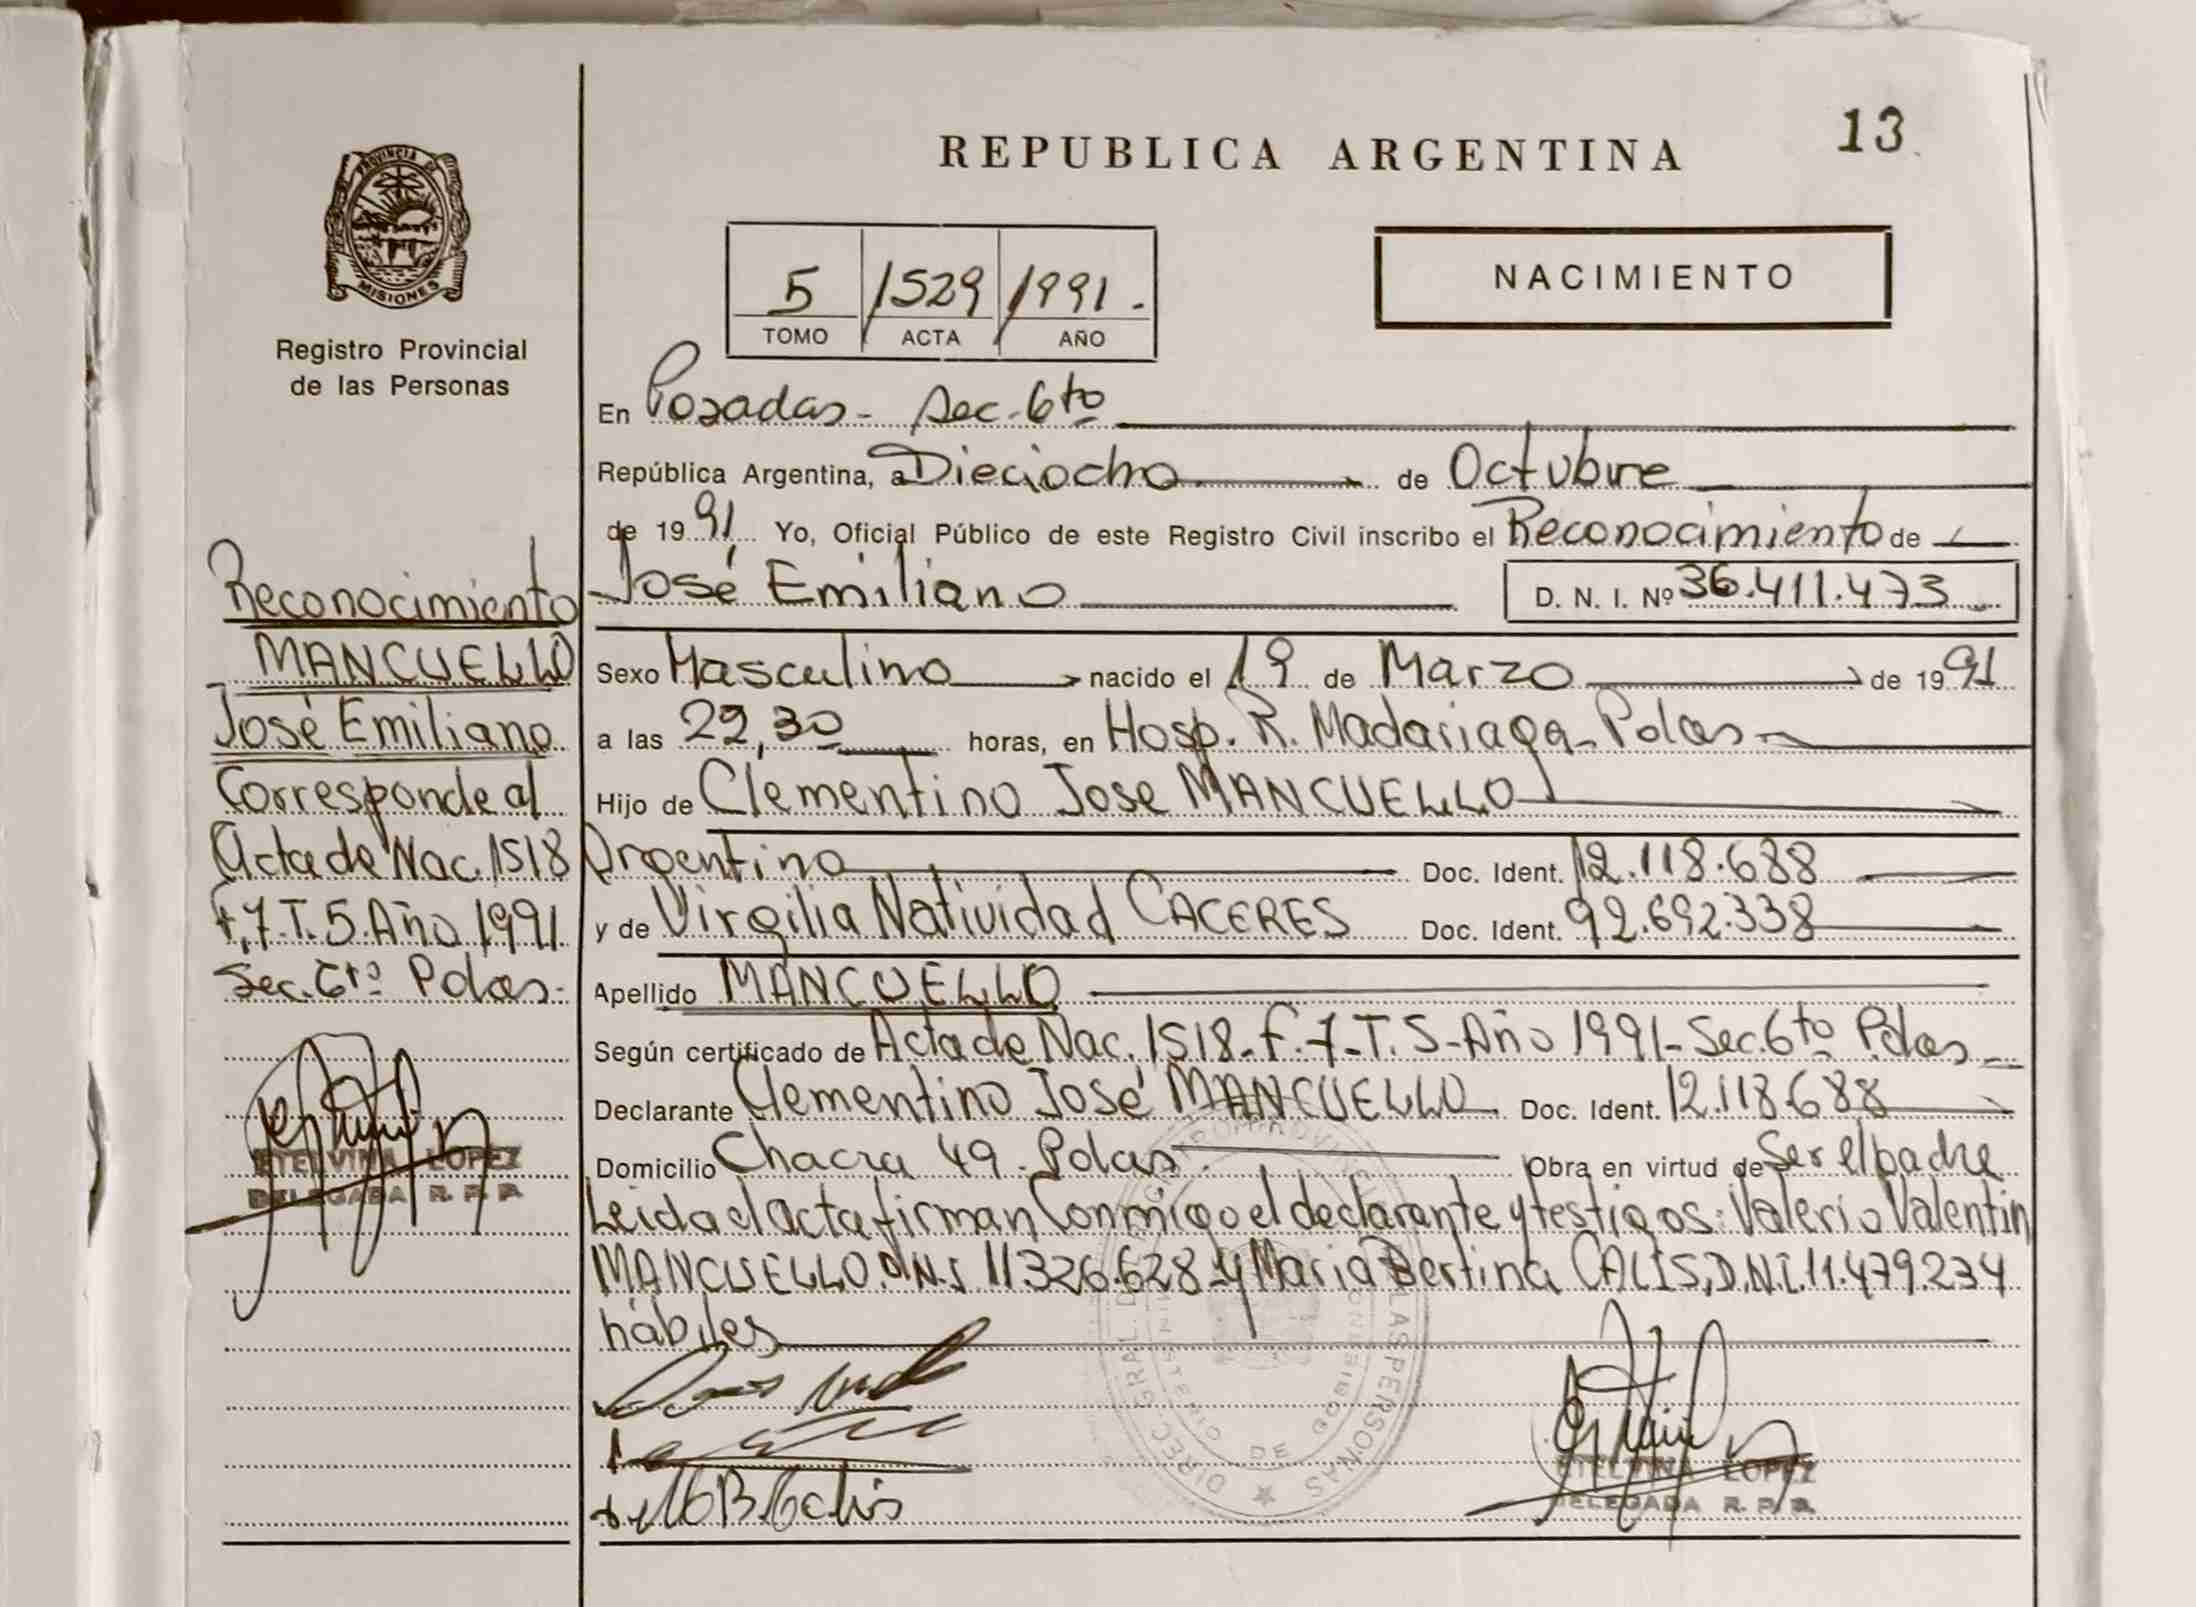 13
REPUBLICA ARGENTINA
PROVINCIA DE
MISIONES
Registro Provincial
de las Personas
5 1529 1991.-
TOMO ACTA AÑO
NACIMIENTO
En Posadas- Sec. 6to
República Argentina, a Dieciocho de Octubre
de 1991 Yo, Oficial Público de este Registro Civil inscribo el Reconocimiento de
José Emiliano D. N. I. Nº 36.411.473
Sexo Masculino nacido el 19 de Marzo de 1991
a las 22,30 horas, en Hosp. R. Madariaga-Pdas-
Hijo de Clementino Jose MANCUELLO
Argentino Doc. Ident. 12.118.688
y de Virgilia Natividad CACERES Doc. Ident. 92.692.338
Apellido MANCUELLO
Según certificado de Acta de Nac. 1518-F.7-T.5-Año 1991-Sec. 6to Pdas-
Declarante Clementino José MANCUELLO Doc. Ident. 12.118.688
Domicilio Chacra 49-Pdas. Obra en virtud de Ser el padre
Leida el acta firman Conmigo el declarante y testigos: Valerio Valentin
MANCUELLO. D.N.I 11.326.628 y Maria Bertina CALIS, D.N.I. 11.479.234
hábiles
M B. Calis
ETELVINA LOPEZ
DELEGADA R. P. P.
Reconocimiento
MANCUELLO
José Emiliano
Corresponde al
Acta de Nac. 1518
F.7.T.5.Año 1991
Sec. 6to Pdas.-
ETELVINA LOPEZ
DELEGADA R. P. P.
DIREC. GRAL. DE LAS PERSONAS
MINISTERIO DE GOBIERNO